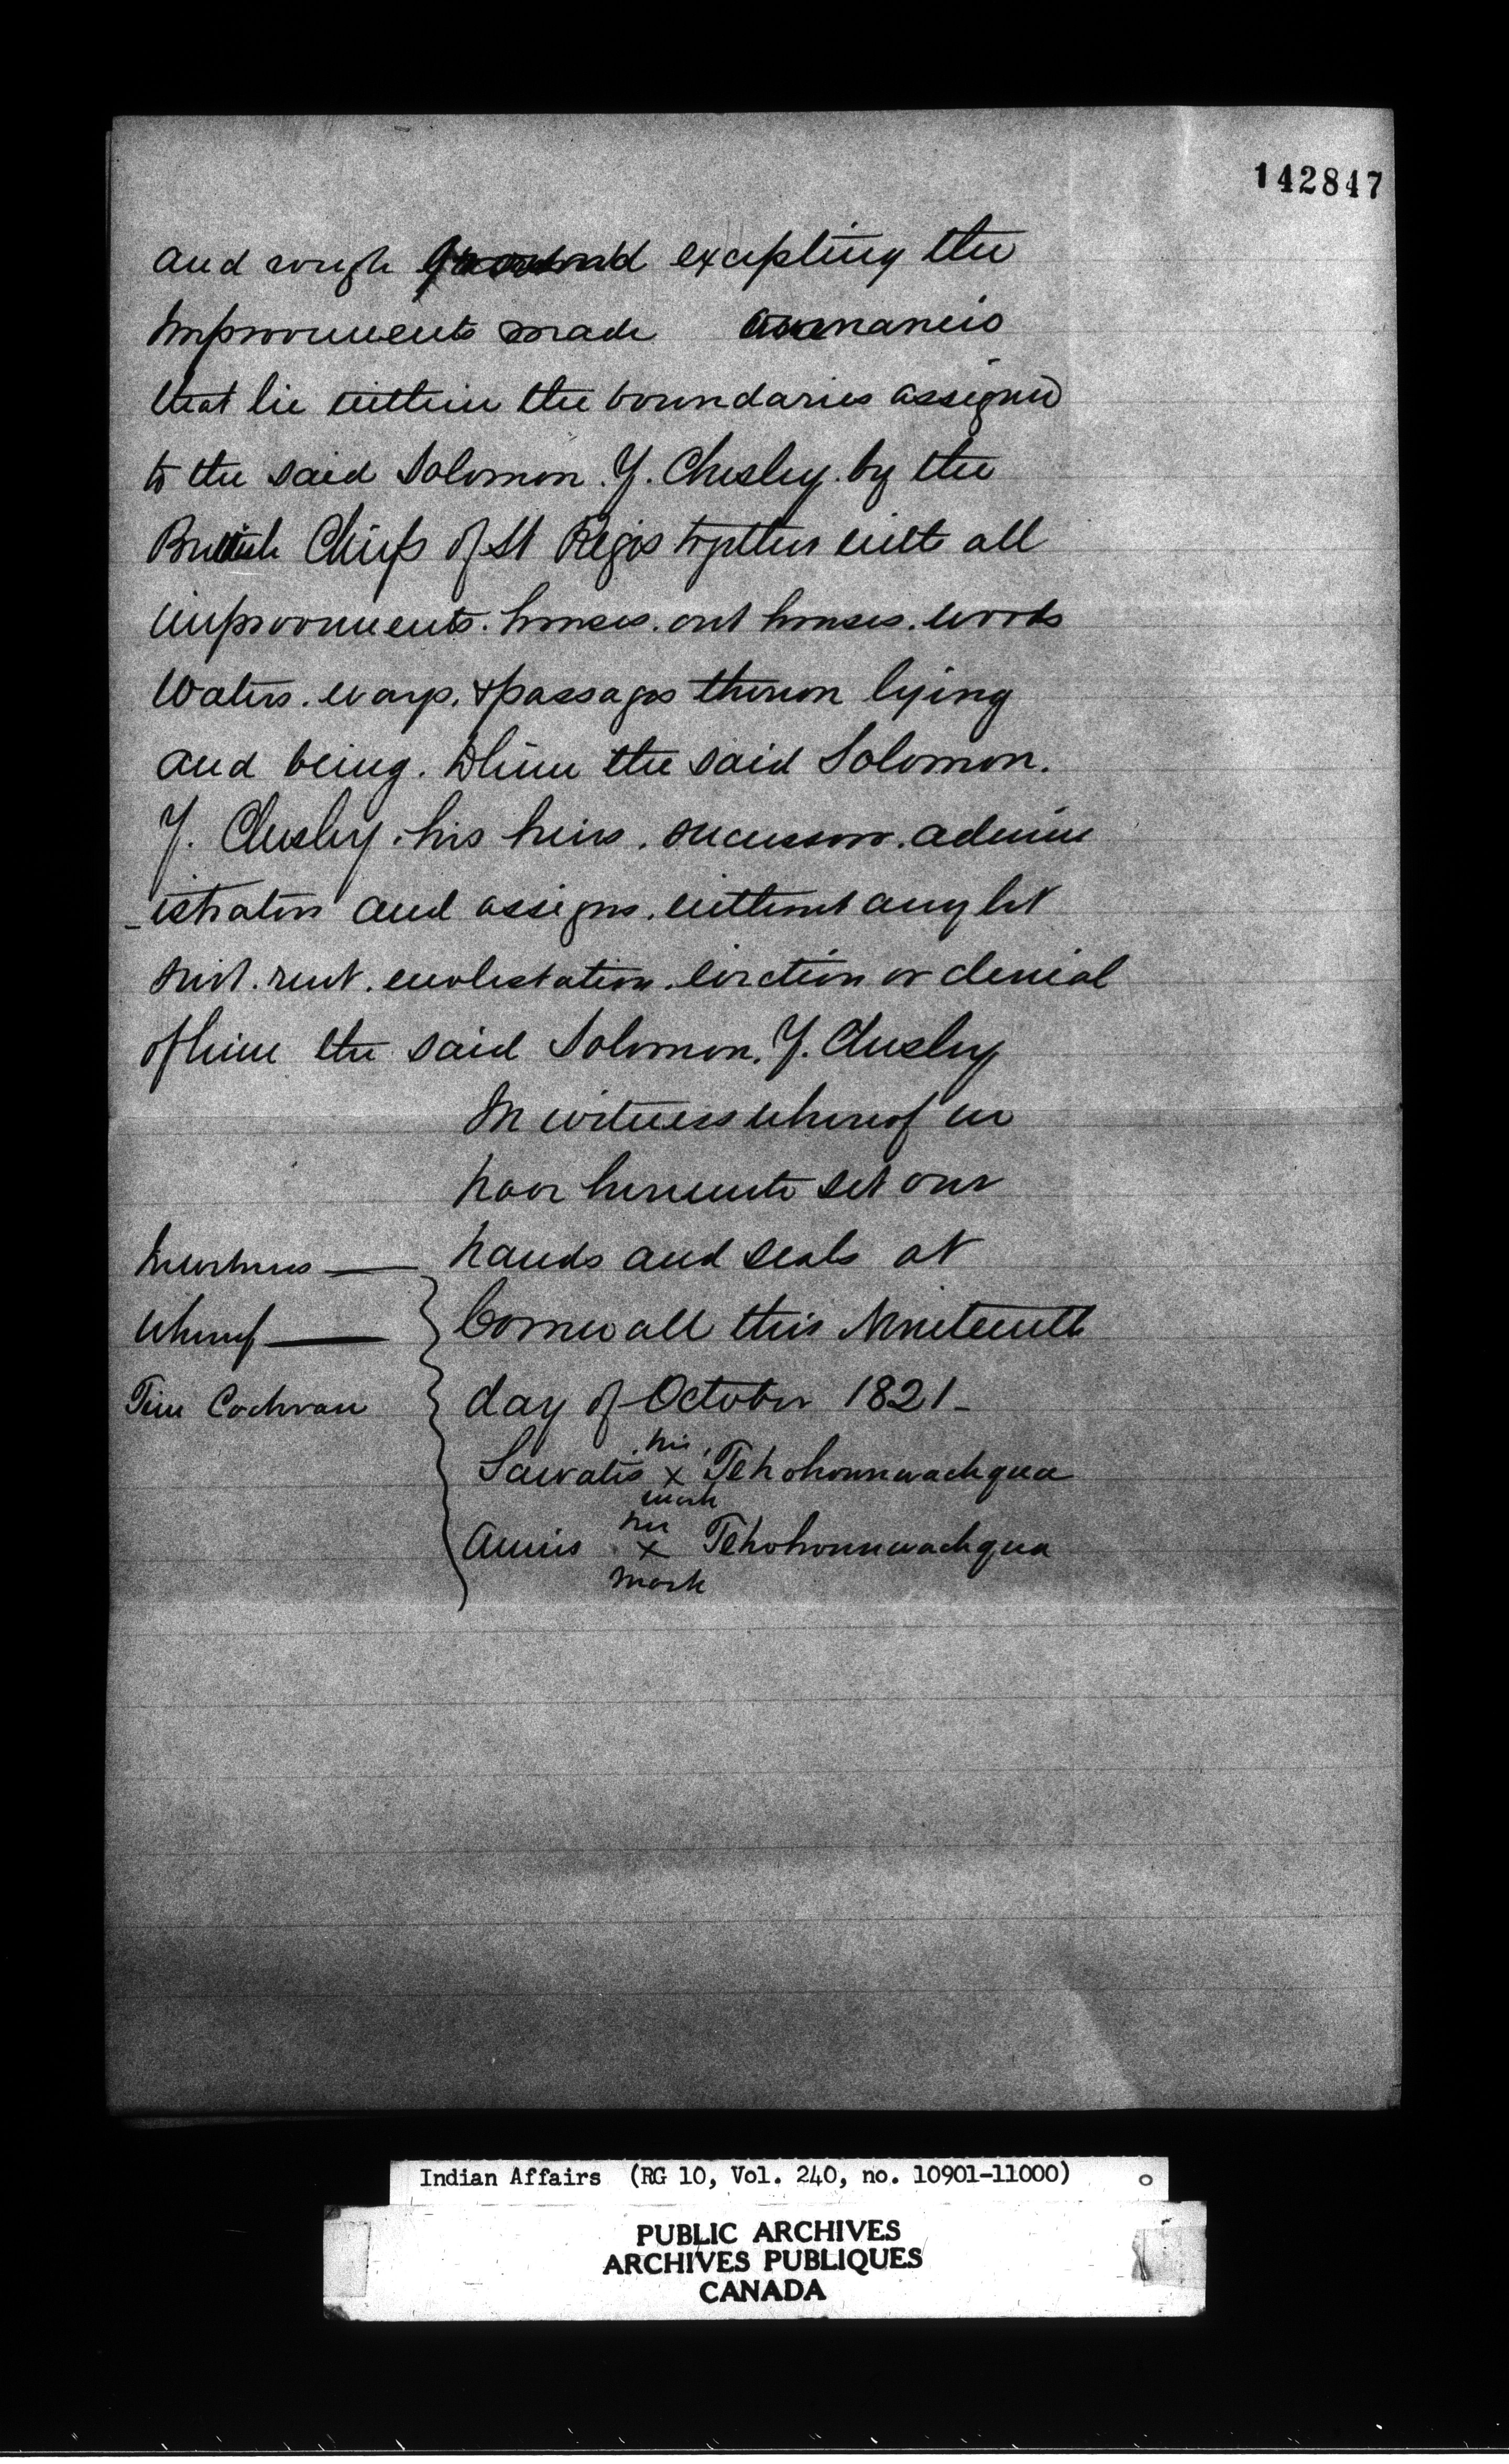 142847
and rough ground excepting the
Improvements made
that lie within the boundaries assigned
to the said Solomon. Y. Chesley. by the
British Chiefs of St Regis together with all
improvements. houses. out houses. woods
Waters. ways. & passages thereon lying
and being. to him the said Solomon.
Y. Chesley. his heirs. successors. admin
-istrators and assigns. without any let
suit. rent. molestation. eviction or denial
of him the said Solomon. Y. Chesley
In witness whereof we
have hereunto set our
hands and seals at
In witness —
whereof —
Cornwall this Nineteenth
Tim Cochran
day of October 1821-
his
Sawatis x Tehohonnwachqua
mark
his
Annis x Tehohonnwachqua
mark
Indian Affairs (RG 10, Vol. 240, no. 10901-11000)
PUBLIC ARCHIVES
ARCHIVES PUBLIQUES
CANADA